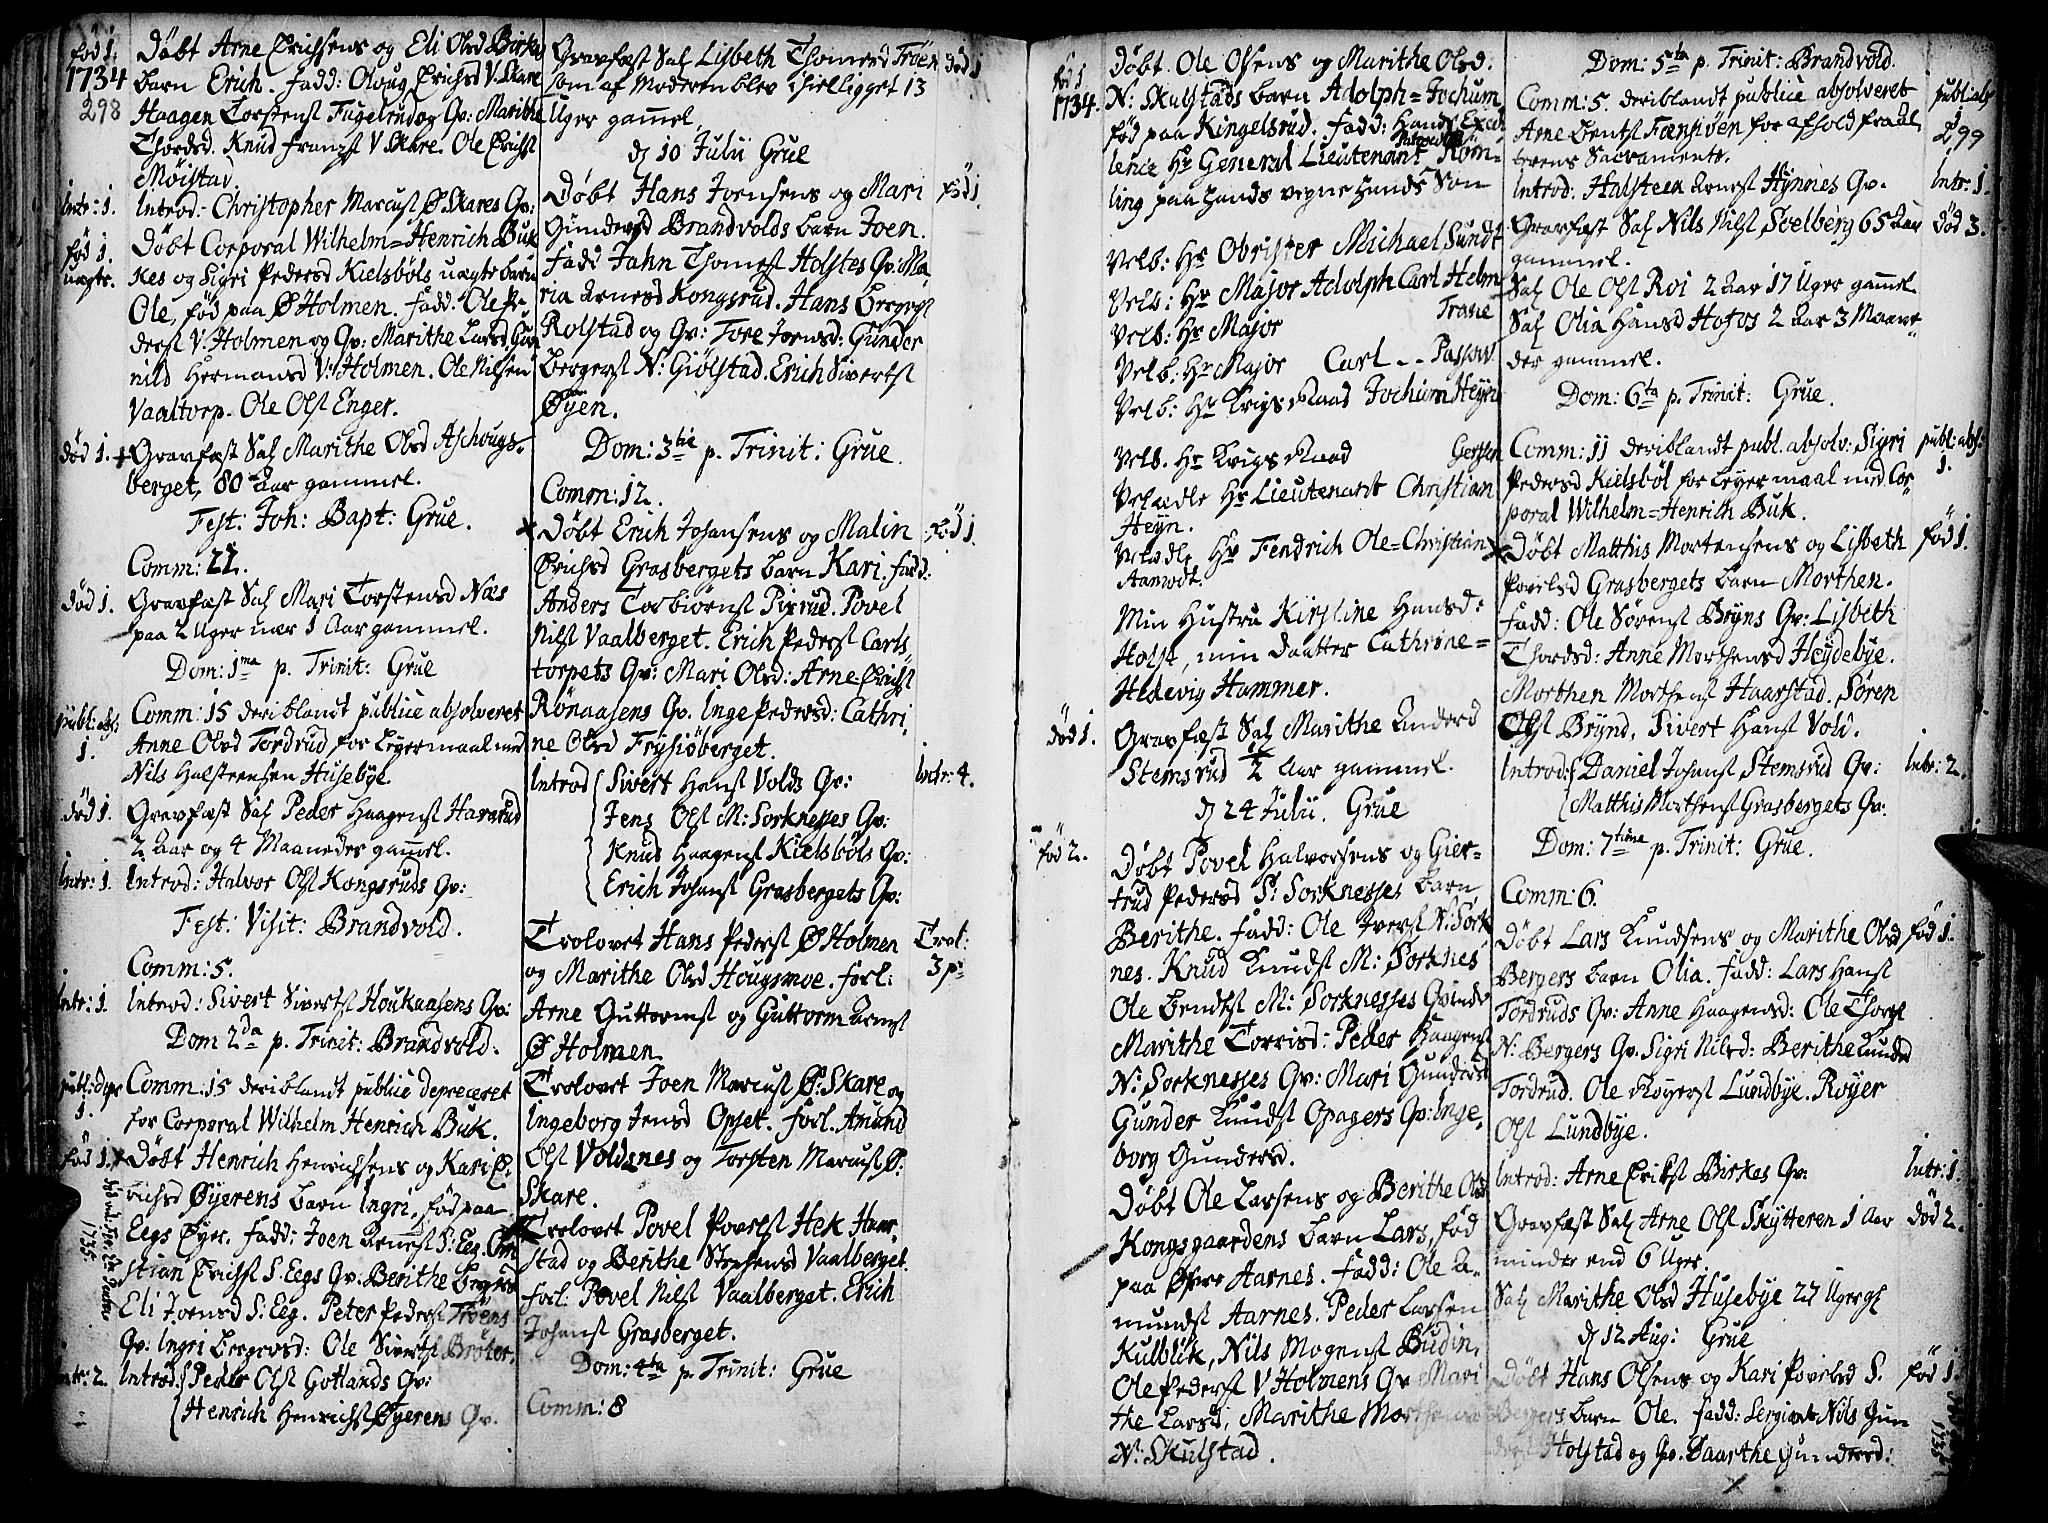 fød 1.
1734
298
Døbt Arne Erichsens og Eli Olsd Birke
barn Erich. fadd: Oloug Erichsd V. Skare
Haagen Torstens Fugelrud og Qv: Marithe
Thordsd. Knud Franzs V. Skare. Ole Erichs
Møistad.
Intr: 1.
Introd: Christopher Marcus Ø Skares Qv:
fød 1.
uægte.
Døbt Corporal Wilhelm=Henrich Buk
kes og Sigri Pedersd Kielsbøls uægte barn
Ole, fød paa Ø Holmen. fadd: Ole Pe-
ders V. Holmen og Qv: Marithe Larsd. Gun
nild Hermansd V: Holmen. Ole Nilsen
Vaaltorp. Ole Ols Enger.
død 1.
Gravfæst Sal Marithe Olsd Aschougs-
berget, 80 Aar gammel.
Fest: Joh: Bapt: Grue.
Comm: 22.
død 1.
Gravfæst Sal Mari Torstensd Næs
paa 2 Uger nær 1 Aar gammel.
Dom: 1ma p. Trinit: Grue
publ: abs:
1.
Comm: 15 deriblandt publice absolveret
Anne Olsd Tordrud for Leyermaal med
Nils Halsteensen Husebye.
død 1.
Gravfæst Sal Peder Haagens Hararud
2 Aar og 4 Maaneder gamel.
Intr: 1.
Introd: Halvor Ols Kongsruds Qv:
Fest: Visit: Brandvold.
Comm: 5.
Intr: 1
Introd: Sivert Siverts Houkaasens Qv:
Dom 2da p. Trinit: Brandvold.
publ: depr
1.
Comm: 15 deriblandt publice depreceret
for Corporal Wilhelm Henrich Buk.
fød 1.
Døbt Henrich Henrichsens og Kari E-
richsd Øyerens barn Ingri, fød paa
Eegs Øyer. fadd: Joen Arnes S: Eeg.
stian Erichs S. Eegs Qv. Berithe
Eli Joensd S: Eeg. Peter Peders Troens
Qv: Ingri Bergersd: Ole Siverts Bråten.
1735
Intr: 2.
Introd: Peder Ols Gotlands Qv:
Henrich Henrichs Øyerens Qv.
Gravfæst Sal Lisbeth Thomesd Troen
som af Moderen blev ihielligget 13
Uger gamel.
død 1
d 10 Julii Grue
Døbt Hans Joensens og Mari
Gundersd Brandvolds barn Joen.
fadd Jahn Thomes Holstes Qv: Ma
ria Arnesd Kongsrud. Hans Bergers
Rolstad og Qv: Tore Joensd: Gunder
Bergers N: Giølstad. Erich Siverts
Øyen.
fød 1.
Dom: 3tie p. Trinit: Grue.
Comm: 12.
Døbt Erich Johansens og Malin
Erichsd Grasbergets barn Kari. fadd:
Anders Torbiørns Pixrud. Povel
Nils Vaalberget. Erich Peders Carls
torpets Qv: Mari Olsd: Arne Erichs
Rønaasens Qv. Inge Pedersd: Cathri,
ne Olsd Frysiøberget.
fød 1.
Introd Sivert Hans Volds Qv:
Jens Ols M: Sorknesses Qv:
Knud Haagens Kielsbøls Qv:
Erich Johans Grasbergets Qv:
Intr: 4.
Trolovet Hans Peders Ø Holmen
og Marithe Olsd Hougsmoe. forl:
Arne Guttorms og Guttorm Arnes
Ø Holmen.
Trol:
3 p:
Trolovet Joen Marcus Ø: Skare og
Ingeborg Jensd Opset. forl. Amund
Ols Voldsnes og Torsten Marcus Ø:
Skare.
Trolovet Povel Povels Hek Haar
stad og Berithe Stephensd Vaalberget.
forl: Povel Nils Vaalberget. Erich
Johans Grasberget.
Dom: 4ta p. Trinit: Grue
Comm: 8
fød 1
1734.
Døbt Ole Olsens og Marithe Olsd.
N: Skulstads barn Adolph=Jochum
fød paa Kingelsrud. fadd: Hands Excel
lence Hr General Lieutenant Røm-
ling paa hands vegne Hands Søn
Velb: Hr Obrister Michael Sundt
Velb: Hr Major Adolph Carl Helm
Velb: Hr Major Trane
Velb: Hr Major Carl - - Passow.
Velb: Hr Krigs Raad Jochum Heyn
Velb. Hr Krigs Raad Gerssen
Velædle Hr Lieutenant Christian
Heyn.
Velædle Hr Fendrich Ole=Christian
Aamodt.
Min Hustru Kirstine Hansd:
Holst, min Daatter Cathrine=
Hedevig Hammer.
død 1.
Gravfæst Sal Marithe Andersd
Stemsrud 1/2 Aar gammel.
d 24 Julii. Grue
fød 2.
Døbt Povel Halvorsens og Gier=
trud Pedersd S: Sorknesses barn
Berithe. fadd: Ole Ivers N: Sork
nes. Knud Knuds M: Sorknes
Ole Bendts M: Sorknesses Qvinde
Marithe Torrisd: Peder Haagens
N: Sorknesses Qv: Mari Gundersd
Gunder Knuds Opagers Qv: Inge,
borg Gundersd.
Døbt Ole Larsens og Berithe Olsd
Kongsgaardens barn Lars, fød
paa Øfre Aarnes. fadd: Ole A-
munds Aarnes. Peder Larsen
Kulblik, Nils Mogens Budin,
Ole Peders V Holmens Qv Mari
the Larsd, Marithe
N: Skulstad.
Dom: 5ta p. Trinit: Brandvold.
Comm: 5. deriblandt publice absolveret
Arne Bents for afhold fra Al
terens Sacramente.
publ: abs
1
299
Introd: Halsteen Arnes Hynnes Qv.
Intr: 1.
Gravfæst Sal Nils Nils Svelberg 65 Aar
gammel.
død 3.
Sal Ole Ols Roi 2 Aar 17 Uger gamel
Sal Olia Hansd Hofos 2 Aar 3 Maane
der gammel.
Dom: 6ta p. Trinit: Grue.
Comm: 11 deriblandt publ. absolv: Sigri
Pedersd Kielsbøl for Leyermaal med Cor-
poral Wilhelm=Henrich Buk.
publ: abs:
1.
Døbt Matthis Mortensens og Lisbeth
Povelsd Grasbergets barn Morthen.
fadd: Ole Sørens Bryns Qv: Lisbeth
Thordsd: Anne Morthensd Heydebye.
Morthen Morthens Haarstad. Søren
Ols Brynd, Sivert Hans Vold.
fød 1.
Introd: Daniel Johans Stemsrud Qv:
Matthis Morthens Grasbergets Qv:
Intr: 2.
Dom: 7tima p. Trinit: Grue.
Comm: 6.
Døbt Lars Knudsens og Marithe Olsd
Bergers barn Olia. fadd: Lars Hans
Tordruds Qv: Anne Haagensd: Ole Thors
N: Bergers Qv. Sigri Nilsd: Berithe Knudsd
Tordrud. Ole Røyers Lundbye. Røyer
Ols Lundbye.
fød 1.
Introd: Arne Eriks Birkes Qv:
Intr: 1.
Gravfæst Sal Arne Ols Skytteren 1 Aar
minder end 6 Uger.
død 2.
Sal Marithe Olsd Husebye 27 Uger gl
d 12 Aug: Grue
Døbt Hans Olsens og Kari Povelsd S.
Bergers barn Ole. fadd: Sergiant Nils Gun
ders Holstad og Qv. Baarthe Gundersd:
fød 1.
1735